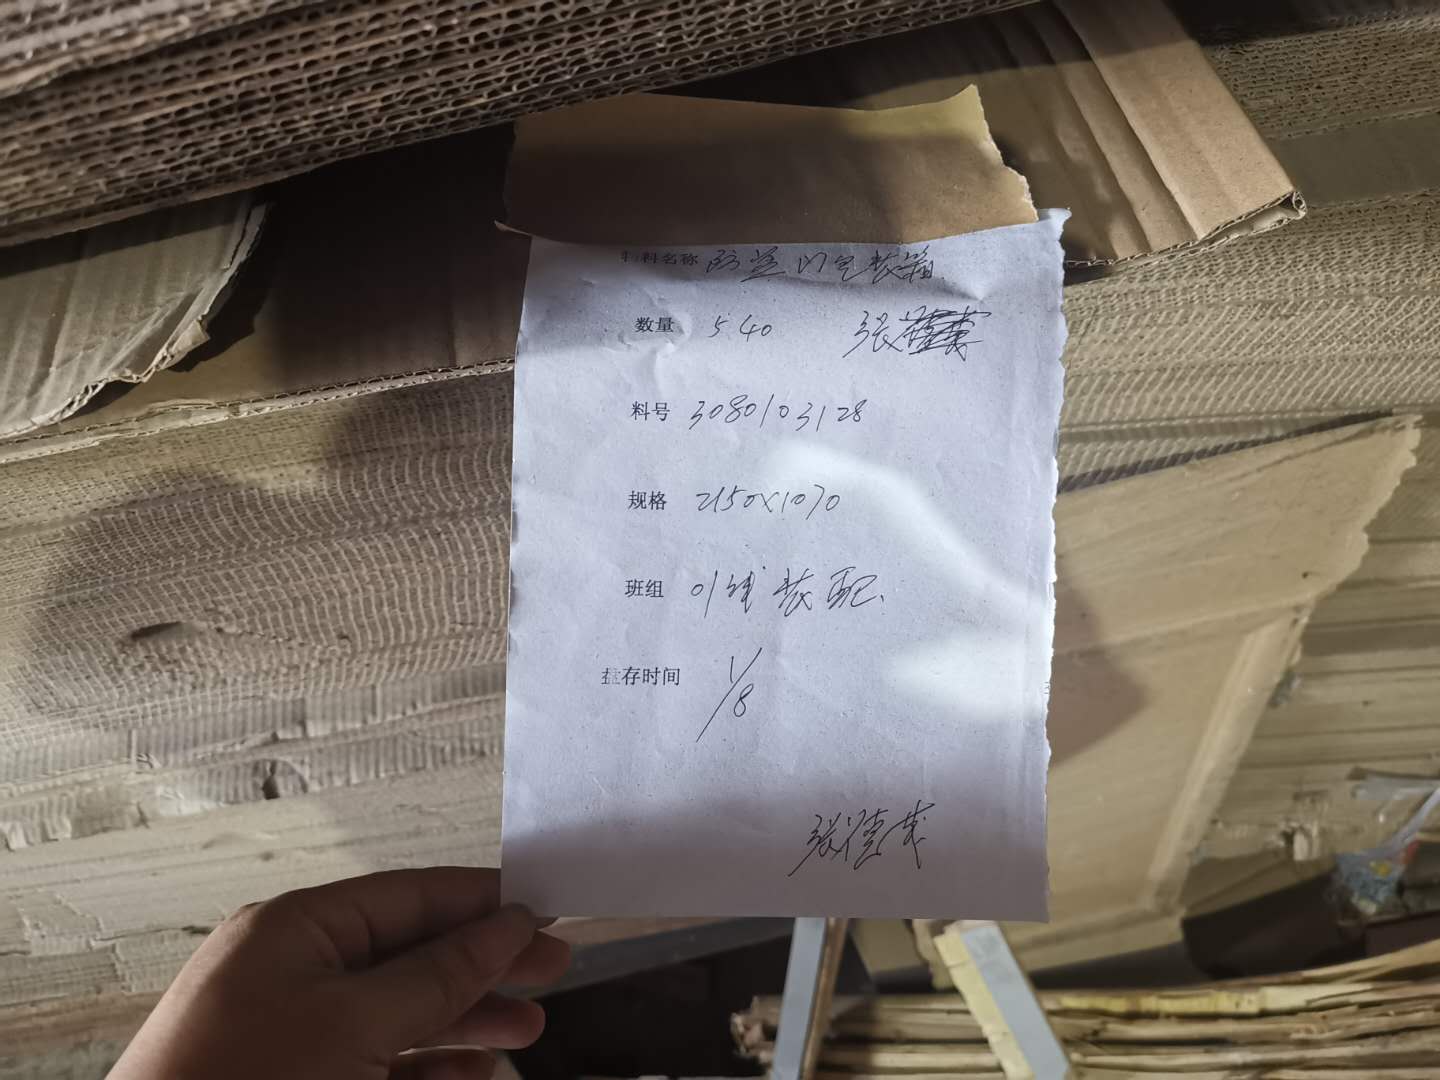 材料名称 防盗门包装箱
数量 540 张
料号 3080103128
规格 2150×1070
班组 01线装配
盘存时间 1/8
张德茂